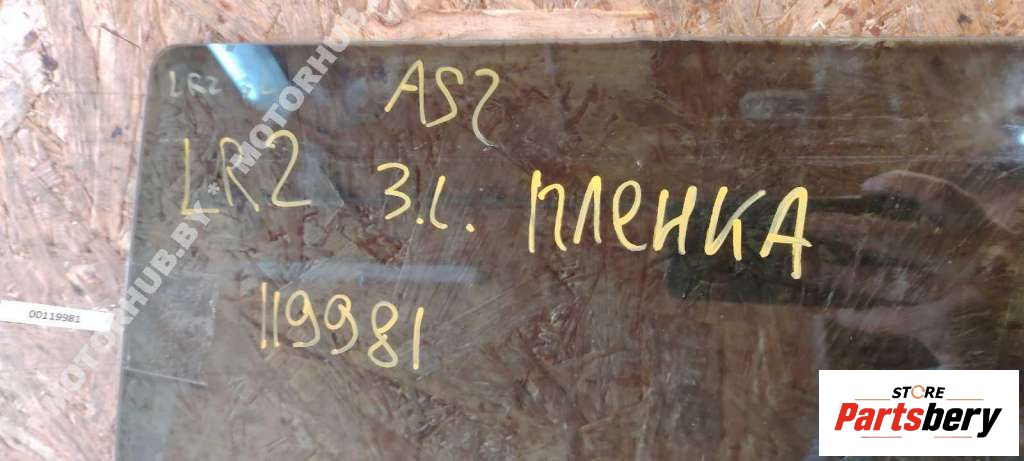 LR2
AS2
LR2
3.L.
ПЛЕНКА
119981
00119981
MOTORHUB.BY * MOTORHUB
STORE
Partsbery